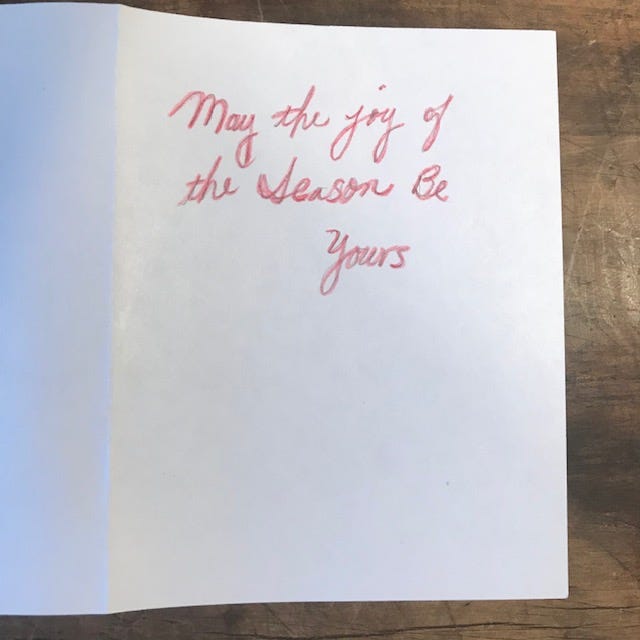 May the joy of
the Season Be
Yours